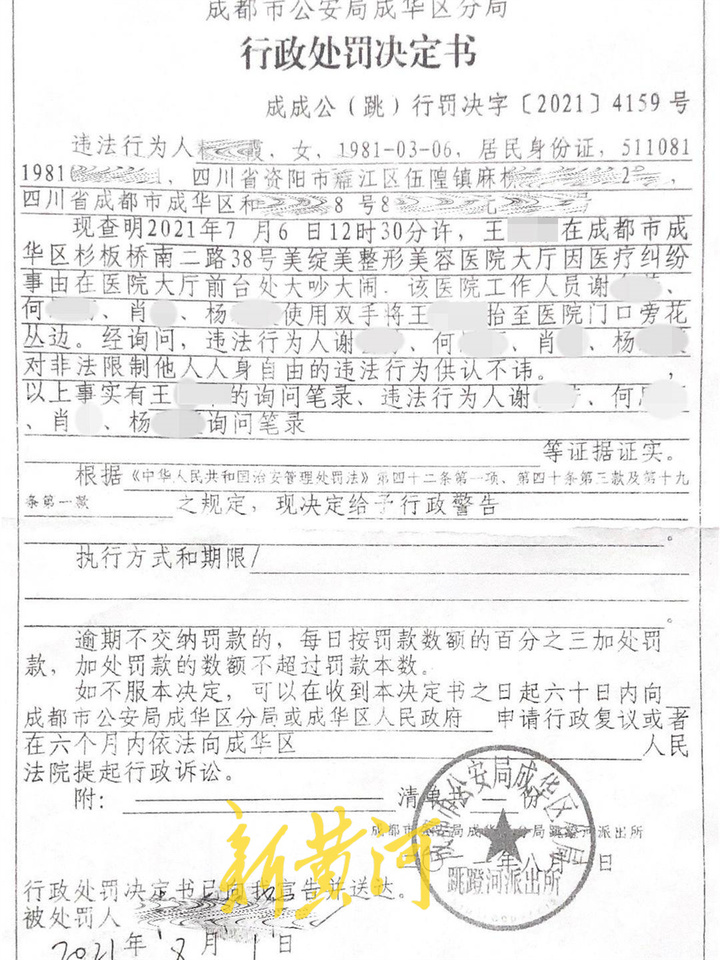 成都市公安局成华区分局
行政处罚决定书
成成公（跳）行罚决字〔2021〕4159 号
违法行为人 霞，女，1981-03-06，居民身份证，511081
1981 ，四川省资阳市雁江区伍隍镇麻 2 ，
四川省成都市成华区和 8 号8 元
现查明2021年7 月6 日12时30分许，王 在成都市成
华区杉板桥南二路38号美绽美整形美容医院大厅因医疗纠纷
事由在医院大厅前台处大吵大闹．该医院工作人员谢 、
何 、肖 、杨 使用双手将王 抬至医院门口旁花
丛边。经询问，违法行为人谢 、何 、肖 、杨
对非法限制他人人身自由的违法行为供认不讳。 ，
以上事实有王 的询问笔录、违法行为人谢 、何
、肖 、杨 询问笔录
等证据证实。
根据《中华人民共和国治安管理处罚法》第四十二条第一项、第四十条第三款及第十九
条第一款 之规定，现决定给予行政警告
。
执行方式和期限/
。
逾期不交纳罚款的，每日按罚款数额的百分之三加处罚
款，加处罚款的数额不超过罚款本数。
如不服本决定，可以在收到本决定书之日起六十日内向
成都市公安局成华区分局或成华区人民政府 申请行政复议或者
在六个月内依法向成华区 人民
法院提起行政诉讼。
附： 清单共 份
成都市公安局成华区分局跳蹬河派出所
年八月 日
公安局成华区分局
跳蹬河派出所
新黄河
行政处罚决定书已向我宣告并送达。
被处罚人
2021 年 8 月 1 日